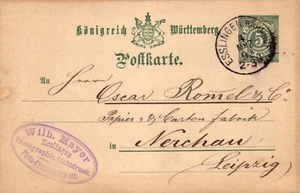 Königreich Württemberg
Postkarte.
5
ESSLINGEN
2-3
An
Herren
Oscar Romel & Co.
Papier & Carton fabrik
in Nerchau
Leipzig
Wilh. Mayor
Esslingen
Photographie, Lichtdruck